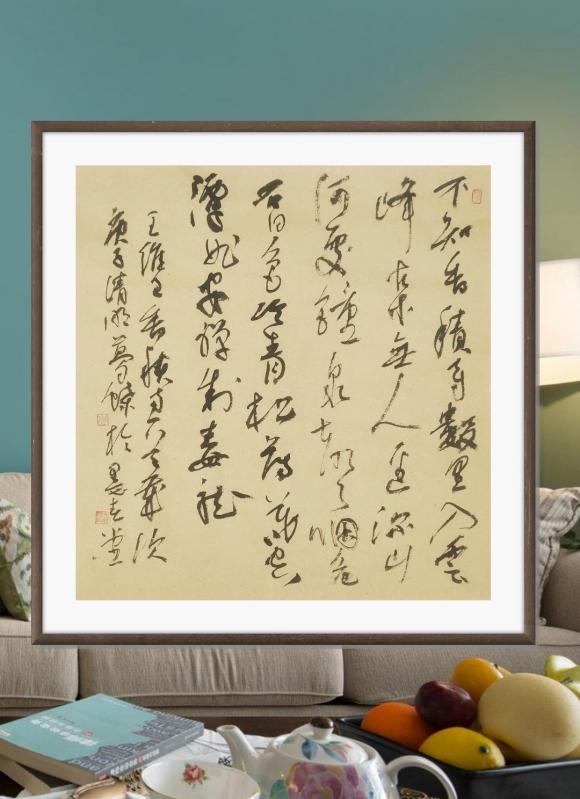 不知香積寺數里入雲
峰古木無人逕深山
何處鐘泉聲咽危
石日色冷青松薄暮空
潭曲安禪制毒龍
王維過香積寺歲次
庚子清明於堂